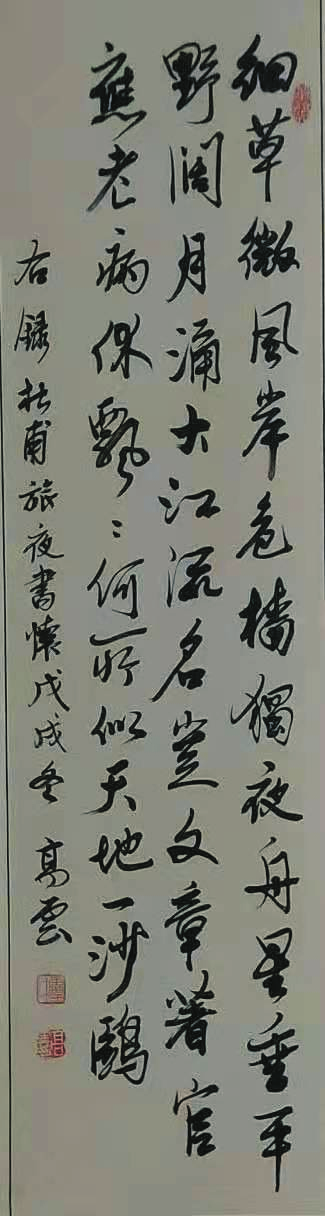 細草微風岸危檣獨夜舟星垂平
野闊月涌大江流名豈文章著官
應老病休飄〻何所似天地一沙鷗
右録杜甫旅夜書懷戊戌冬 高雲